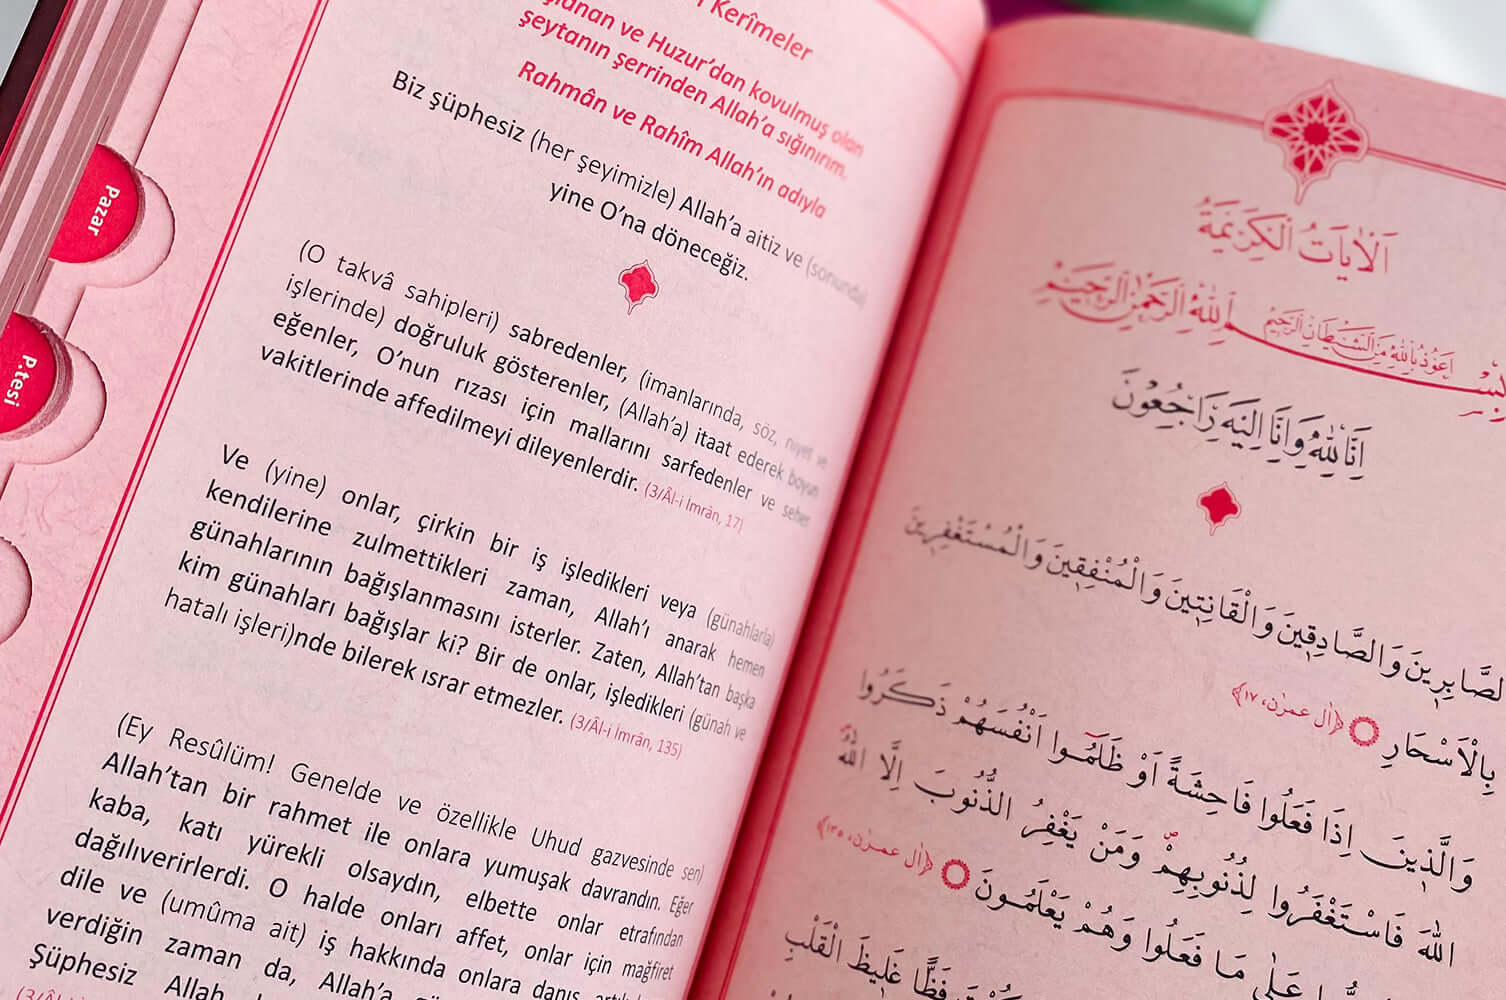 Pazar
P.tesi
Kerîmeler
ve Huzur'dan kovulmuş olan
şeytanın şerrinden Allah'a sığınırım.
Rahmân ve Rahîm Allah'ın adıyla
Biz şüphesiz (her şeyimizle) Allah'a aitiz ve (sonunda)
yine O'na döneceğiz.
(O takvâ sahipleri) sabredenler, (imanlarında, söz, niyet ve
işlerinde) doğruluk gösterenler, (Allah'a) itaat ederek boyun
eğenler, O'nun rızası için mallarını sarfedenler ve seher
vakitlerinde affedilmeyi dileyenlerdir. (3/Âl-i İmrân, 17)
Ve (yine) onlar, çirkin bir iş işledikleri veya (günahlarla)
kendilerine zulmettikleri zaman, Allah'ı anarak hemen
günahlarının bağışlanmasını isterler. Zaten, Allah'tan başka
kim günahları bağışlar ki? Bir de onlar, işledikleri (günah ve
hatalı işleri)nde bilerek ısrar etmezler. (3/Âl-i İmrân, 135)
(Ey Resûlüm! Genelde ve özellikle Uhud gazvesinde sen)
Allah'tan bir rahmet ile onlara yumuşak davrandın. Eğer
kaba, katı yürekli olsaydın, elbette onlar etrafından
dağılıverirlerdi. O halde onları affet, onlar için mağfiret
dile ve (umûma ait) iş hakkında onlara danış
verdiğin zaman da, Allah'a
Şüphesiz Allah
اَلْاٰيَاتُ الْكَرِيمَةُ
اَعُوذُ بِاللّٰهِ مِنَ الشَّيْطَانِ الرَّجِيمِ
بِسْمِ اللّٰهِ الرَّحْمٰنِ الرَّحِيمِ
اِنَّا لِلّٰهِ وَاِنَّا اِلَيْهِ رَاجِعُونَ
اَلصَّابِرِينَ وَالصَّادِقِينَ وَالْقَانِتِينَ وَالْمُنْفِقِينَ وَالْمُسْتَغْفِرِينَ
بِالْاَسْحَارِ ﴿اٰل عمرٰن، ١٧﴾
وَالَّذِينَ اِذَا فَعَلُوا فَاحِشَةً اَوْ ظَلَمُٓوا اَنْفُسَهُمْ ذَكَرُوا
اللّٰهَ فَاسْتَغْفَرُوا لِذُنُوبِهِمْۖ وَمَنْ يَغْفِرُ الذُّنُوبَ اِلَّا اللّٰهُ
عَلٰى مَا فَعَلُوا وَهُمْ يَعْلَمُونَ ﴿اٰل عمرٰن، ١٣٥﴾
فَظًّا غَلِيظَ الْقَلْبِ